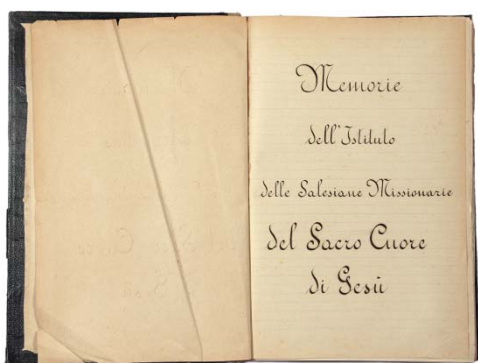 Memorie
dell'Istituto
delle Salesiane Missionarie
del Sacro Cuore
di Gesù